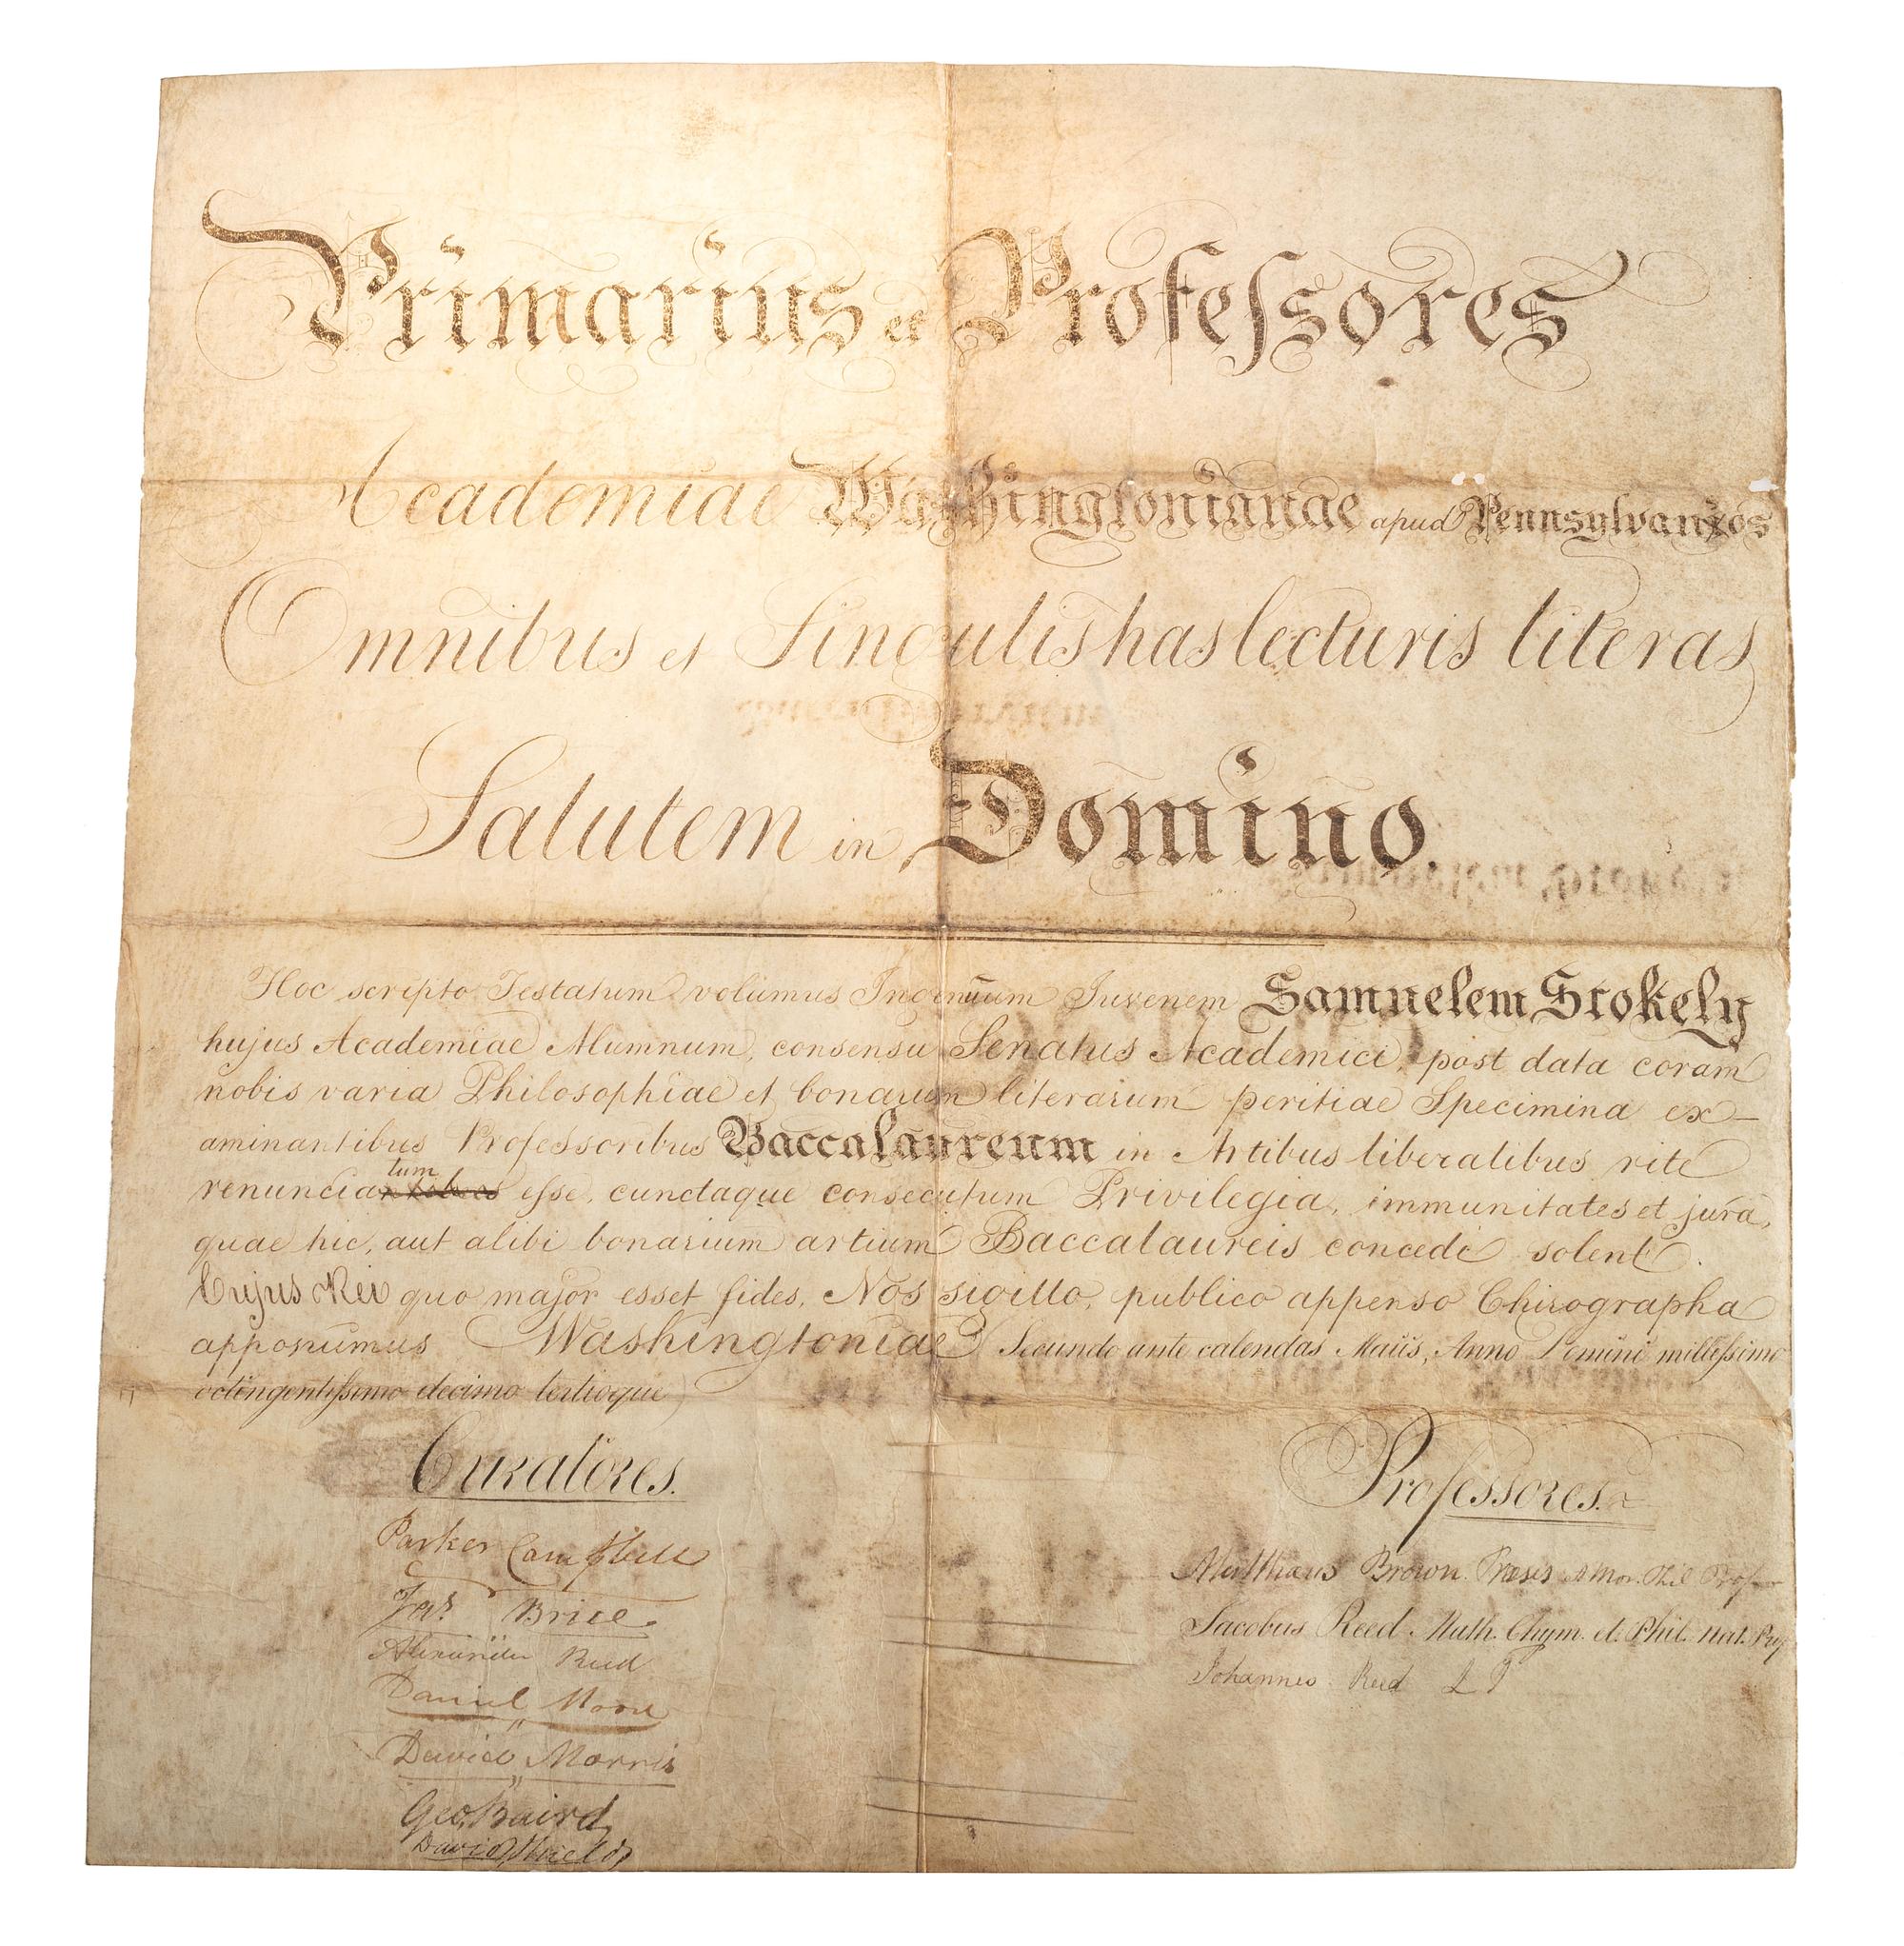 Primarius et Profeſsores
Academiae Washingtonianae apud Pennsylvanos
Omnibus et Singulis has lecturis literas
Salutem in Domino.
Hoc scripto Testatum volumus Ingenuum Juvenem Samuelem Stokely
hujus Academiae Alumnum, consensu Senatus Academici, post data coram
nobis varia Philosophiae et bonarum literarum peritiae Specimina ex-
aminantibus Profeſsoribus Baccalaureum in Artibus liberalibus rite
tum
renuncia eſse, cunctaque consecutum Privilegia, immunitates et jura,
quae hic, aut alibi bonarium artium Baccalaureis concedi solent.
Cujus Rei quo major esset fides, Nos sigillo, publico appenso Chirographa
apposuimus Washingtoniae Secundo ante calendas Maiis, Anno Domini milleſsimo
octingentiſsimo decimo tertioque
Curatores.
Professores.
Parker Campbell
Jas Brice
Alexander Reed
Daniel Moore
David Morris
Geo Baird
David Shields
Matthaus Brown Præses & Mor. Phil Profsr
Jacobus Reed Math. Chym. et. Phil. nat. Prof
Johannes Reed L P